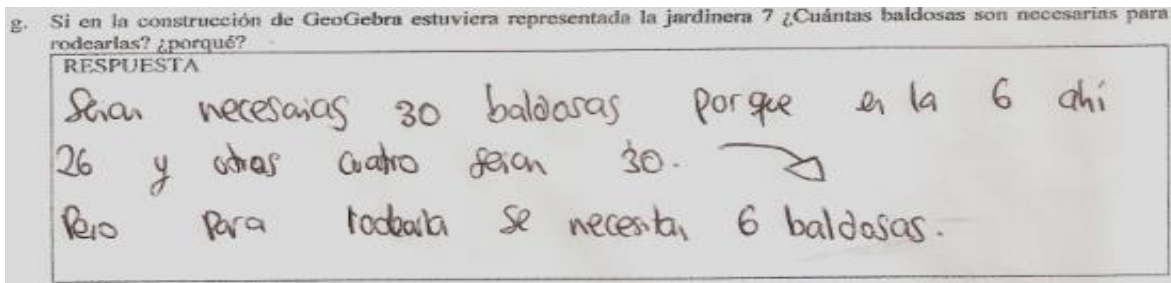 g. Si en la construcción de GeoGebra estuviera representada la jardinera 7 ¿Cuántas baldosas son necesarias para
rodearlas? ¿porqué?
RESPUESTA
Serian necesarias 30 baldosas porque en la 6 ahí
26 y otras cuatro serian 30.
Pero para rodearla se necesitan 6 baldosas.